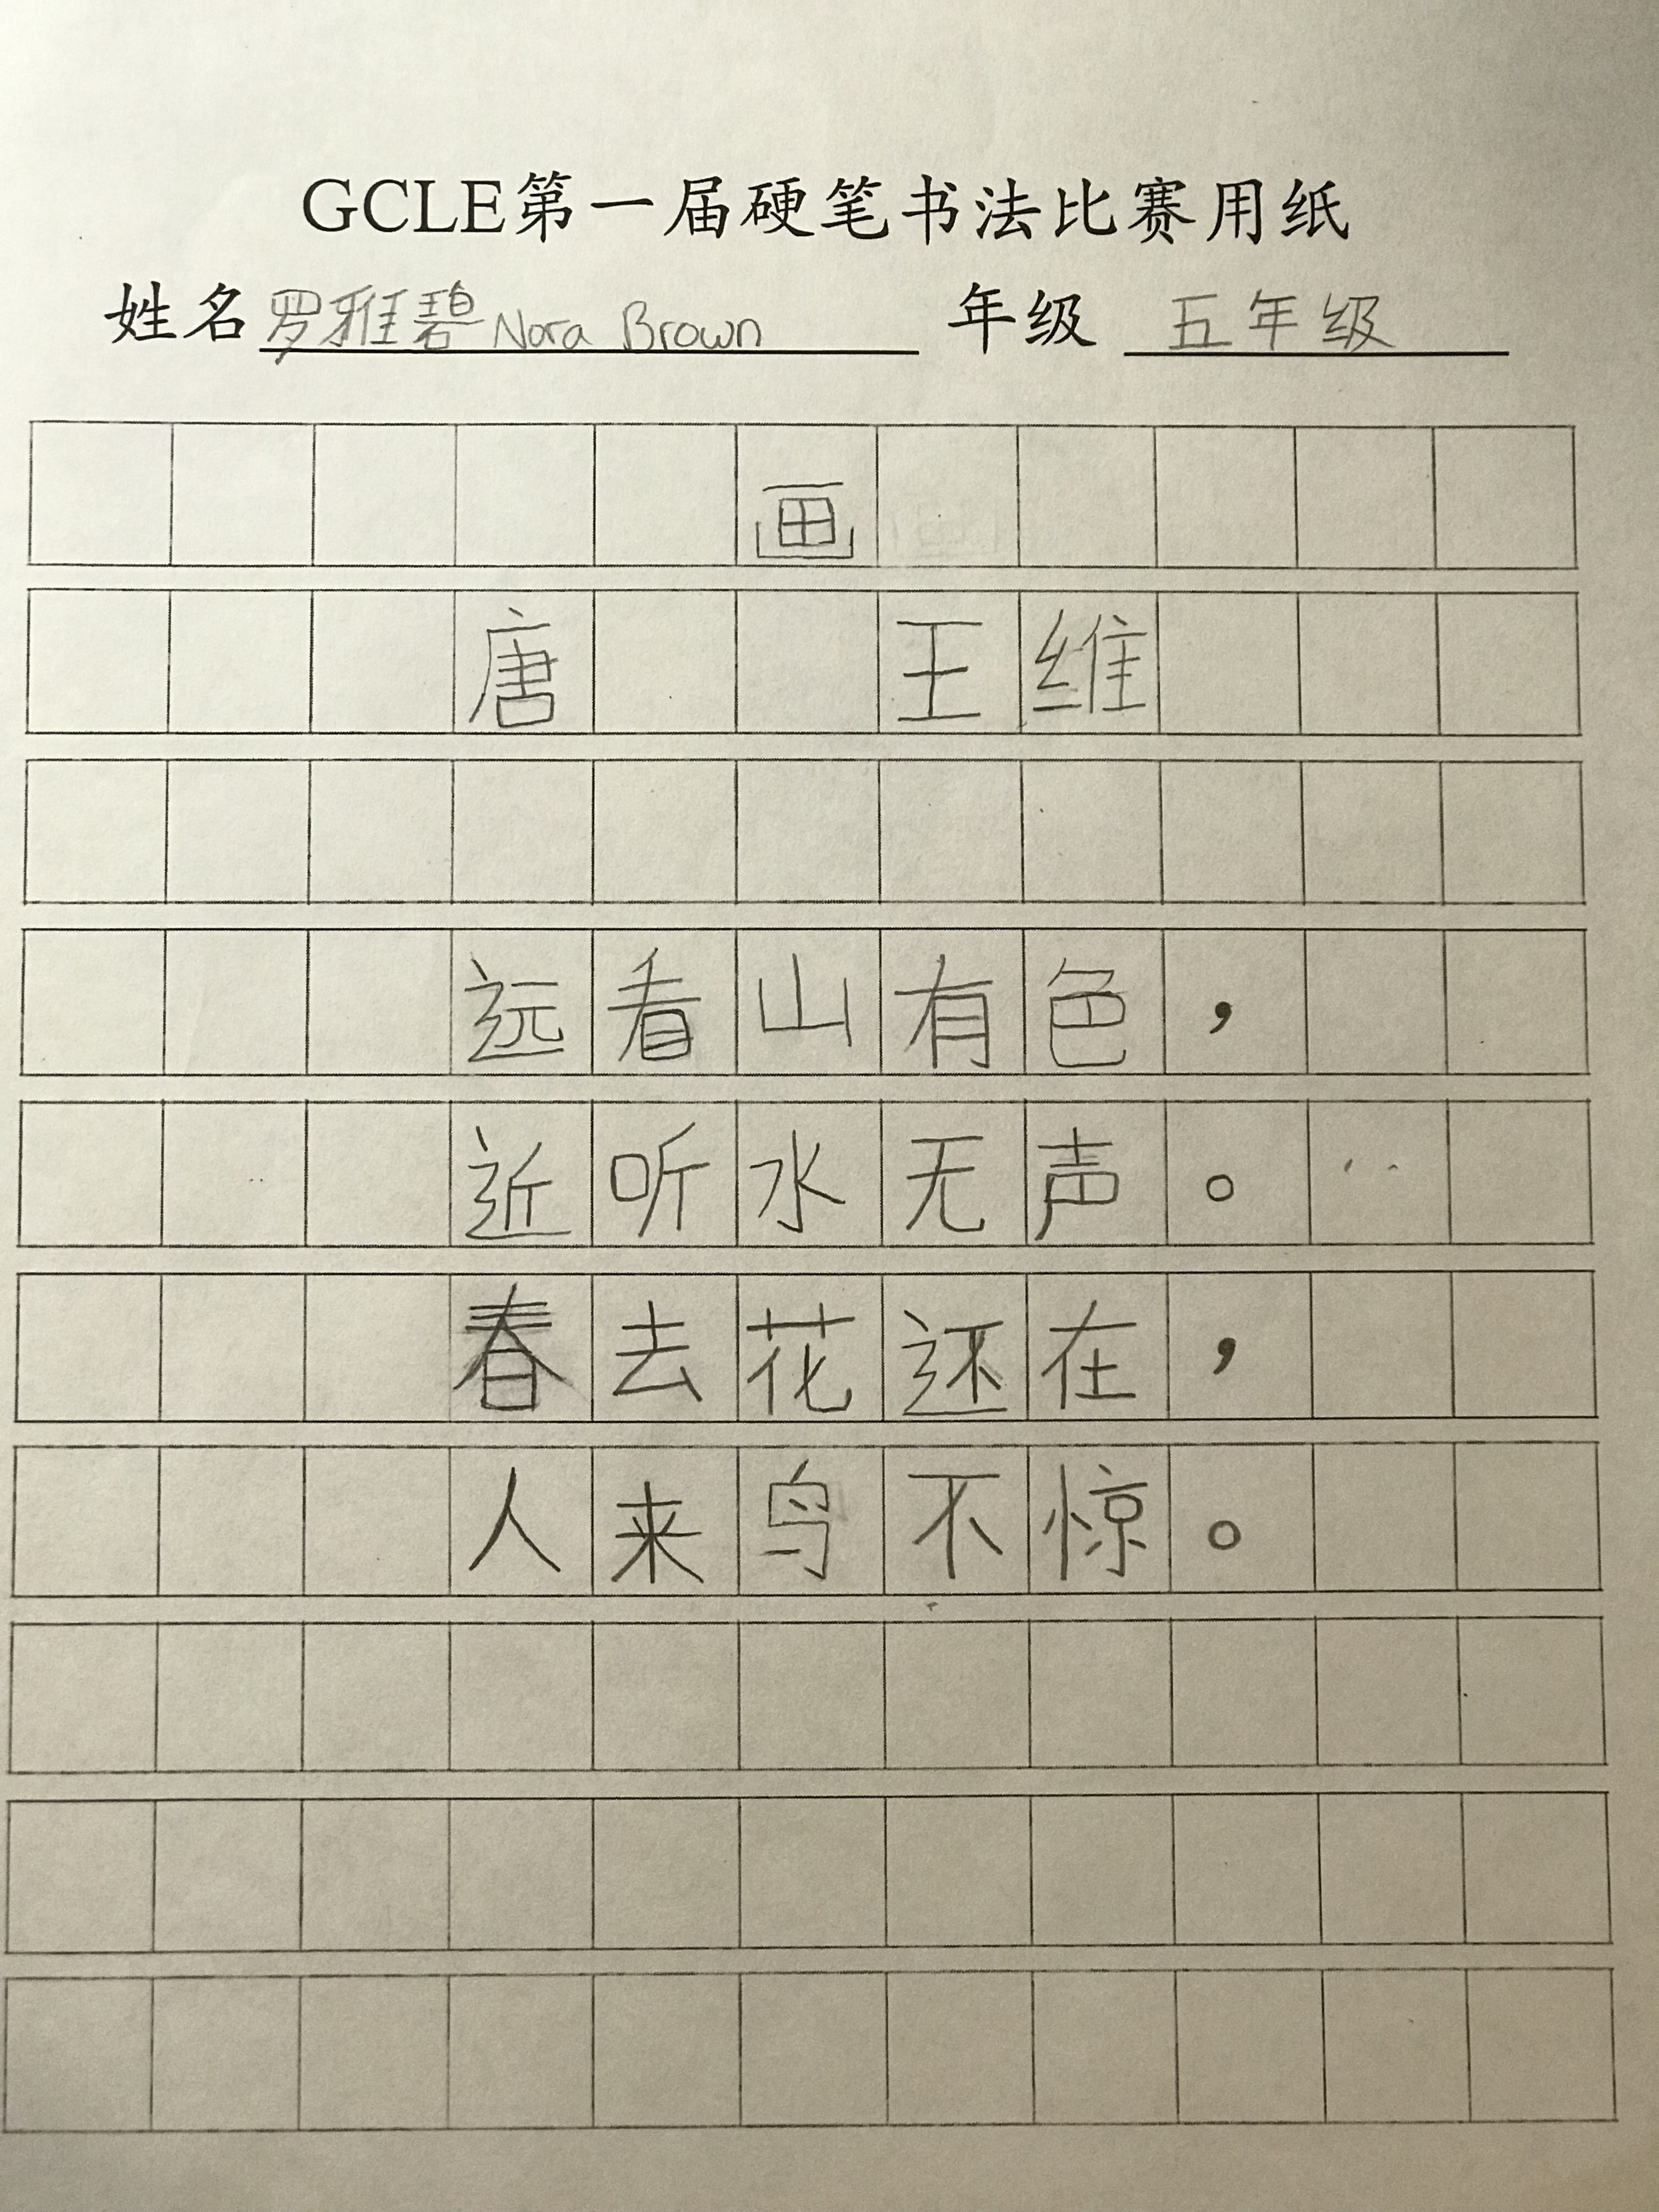 GCLE第一届硬笔书法比赛用纸
姓名 罗雅碧 Nora Brown 年级 五年级
画
唐 王维
远看山有色，
近听水无声。
春去花还在，
人来鸟不惊。